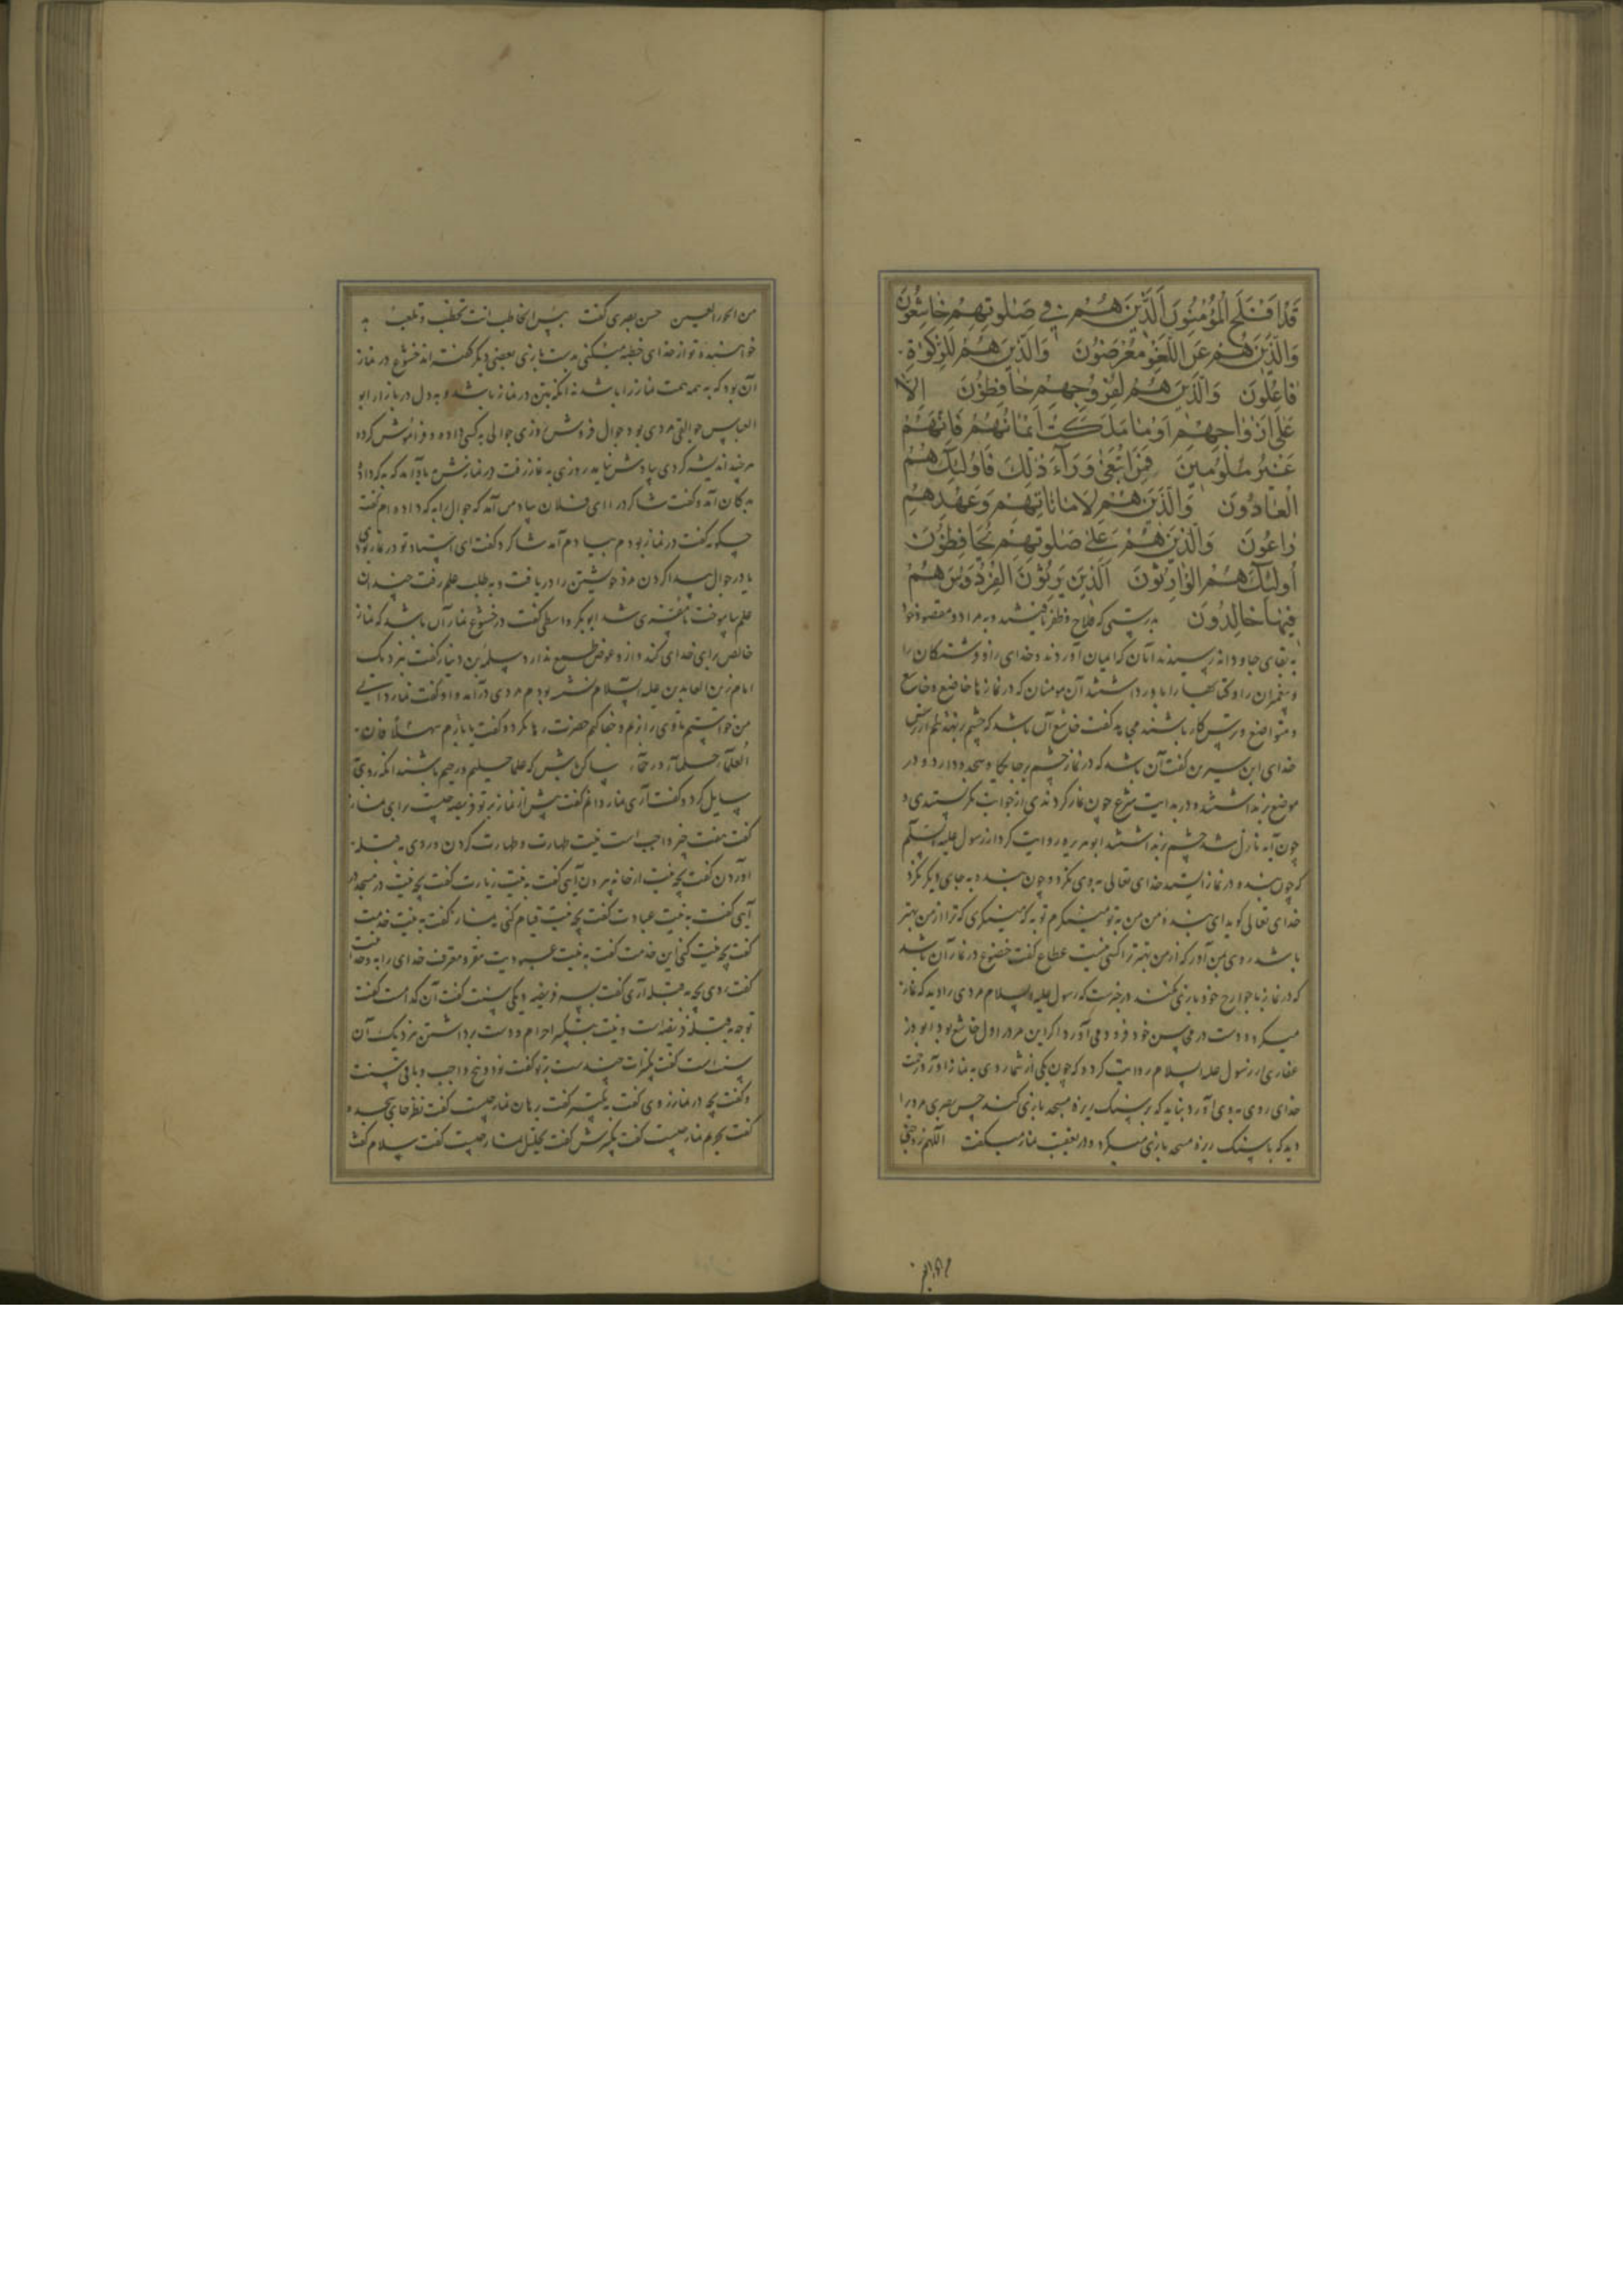 قَدْ اَفْلَحَ الْمُؤْمِنُونَ اَلَّذِينَ هُمْ فِي صَلٰوتِهِمْ خَاشِعُونَ
وَالَّذِينَ هُمْ عَنِ اللَّغْوِ مُعْرِضُونَ وَالَّذِينَ هُمْ لِلزَّكٰوةِ
فَاعِلُونَ وَالَّذِينَ هُمْ لِفُرُوجِهِمْ حَافِظُونَ اِلَّا
عَلٰى اَزْوَاجِهِمْ اَوْ مَا مَلَكَتْ اَيْمَانُهُمْ فَاِنَّهُمْ
غَيْرُ مَلُومِينَ فَمَنِ ابْتَغٰى وَرَآءَ ذٰلِكَ فَاُولٰئِكَ هُمُ
الْعَادُونَ وَالَّذِينَ هُمْ لِاَمَانَاتِهِمْ وَعَهْدِهِمْ
رَاعُونَ وَالَّذِينَ هُمْ عَلٰى صَلٰوتِهِمْ يُحَافِظُونَ
اُولٰئِكَ هُمُ الْوَارِثُونَ اَلَّذِينَ يَرِثُونَ الْفِرْدَوْسَ هُمْ
فِيهَا خَالِدُونَ بدرستی که فلاح و ظفر یافتند و به مراد و مقصود خود
به بقای جاودانه رسیدند آنان که ایمان آوردند و خدای را و فرشتگان را
و پیغمبران را و کتابها را باور داشتند آن مومنان که در نمازها خاضع و خاشع
و متواضع و ترس کار باشند مجاهد گفت خاشع آن باشد که چشم بر نهد
خدای ابن سیرین گفت آن باشد که در نماز چشم بر جایگاه سجده دارد و در
موضع نداشتند و در بدایت شرع چون نماز کردندی از جوانب نگرستندی و
چون آیه نازل شد چشم داشتند ابو هریره روایت کرد از رسول علیه السلام
که چون بنده در نماز ایستد خدای تعالی به وی نگرد و چون بنده به جای دیگر نگرد
خدای تعالی گوید ای بنده من من به تو مینگرم تو به که مینگری که ترا از من بهتر
باشد روی بمن آور که از من بهتر ترا کسی نیست عطا گفت خضوع در نماز آن باشد
که در نماز با جوارح خود بازی نکند در خبرست که رسول علیه السلام مردی را دید که نماز
میکرد و دست در محاسن خود فرود می آورد اگر این مرد را دل خاشع بود ابو ذر
غفاری از رسول علیه السلام روایت کرد که چون یکی از شما روی به نماز آورد رحمت
خدای روی به وی آورد نباید که بر سنگ ریزه مسجد بازی کند حسن بصری مردی را
دید که با سنگ ریزه مسجد بازی میکرد و در نماز میگفت اللهم زوجنی
من الحور العین حسن بصری گفت بئس الخاطب انت تخطب و تلعب به
خواهنده تو از خدای خطبه میکنی به دست بازی بعضی دیگر گفته اند خشوع در نماز
آن بود که به همه همت نماز را باشد نه آنکه بتن در نماز باشد و به دل در بازار ابو
العباس جوالقی مردی بود جوال فروش روزی جوالی به کسی داده و فراموش کرده
هر چند اندیشه کردی یادش نیامد روزی به نماز رفت در نمازش یاد آمد که به که داد
به دکان آمد و گفت شاگرد را ای فلان یادم آمد که جوال به که داده ام گفت
چگونه گفت در نماز بودم بیادم آمد شاگرد گفت ای استاد تو در نماز بودی
یا در جوال پیدا کردن مرد خویشتن را دریافت و به طلب علم رفت چندان
علم بیاموخت تا مفسری شد ابو بکر واسطی گفت در خشوع نماز آن باشد که نماز
خالص برای خدای کند و از و عوض طمع ندارد بن دینار گفت نزدیک
امام زین العابدین علیه السلام نشسته بودم مردی درآمد و او گفت نماز دانی
من خواستم تا وی را جفا کنم حضرت رها نکرد و گفت مهلا فان
العلماء حلماء رحماء ساکن باش که علما حلیم و رحیم باشند آنگه روی
سایل کرد و گفت آری نماز دانم گفت پیش از نماز بر تو فریضه چیست برای نماز
گفت هفت چیز واجب است نیت طهارت و طهارت کردن و روی به قبله
آوردن گفت بچه نیت از خانه بیرون آیی گفت به نیت زیارت گفت بچه نیت در مسجد
آیی گفت به نیت عبادت گفت بچه نیت قیام کنی به نماز گفت به نیت خدمت
گفت بچه نیت کنی این خدمت گفت به نیت عبودیت مقر و معترف خدای را به وحدانیت
گفت روی بچه به قبله آری گفت به سه فریضه و یکی سنت گفت آن کدامست گفت
توجه به قبله فریضه است و نیت و تکبیر احرام و دست برداشتن نزدیک آن
سنت است گفت تکبیرات چندست بر تو گفت نود و پنج واجب و باقی سنت
و گفت بچه در نماز روی گفت به تکبیر گفت برهان نماز چیست گفت نظر جای سجده
گفت تحریم نماز چیست گفت تکبیرش گفت تحلیل نماز چیست گفت سلام گفت